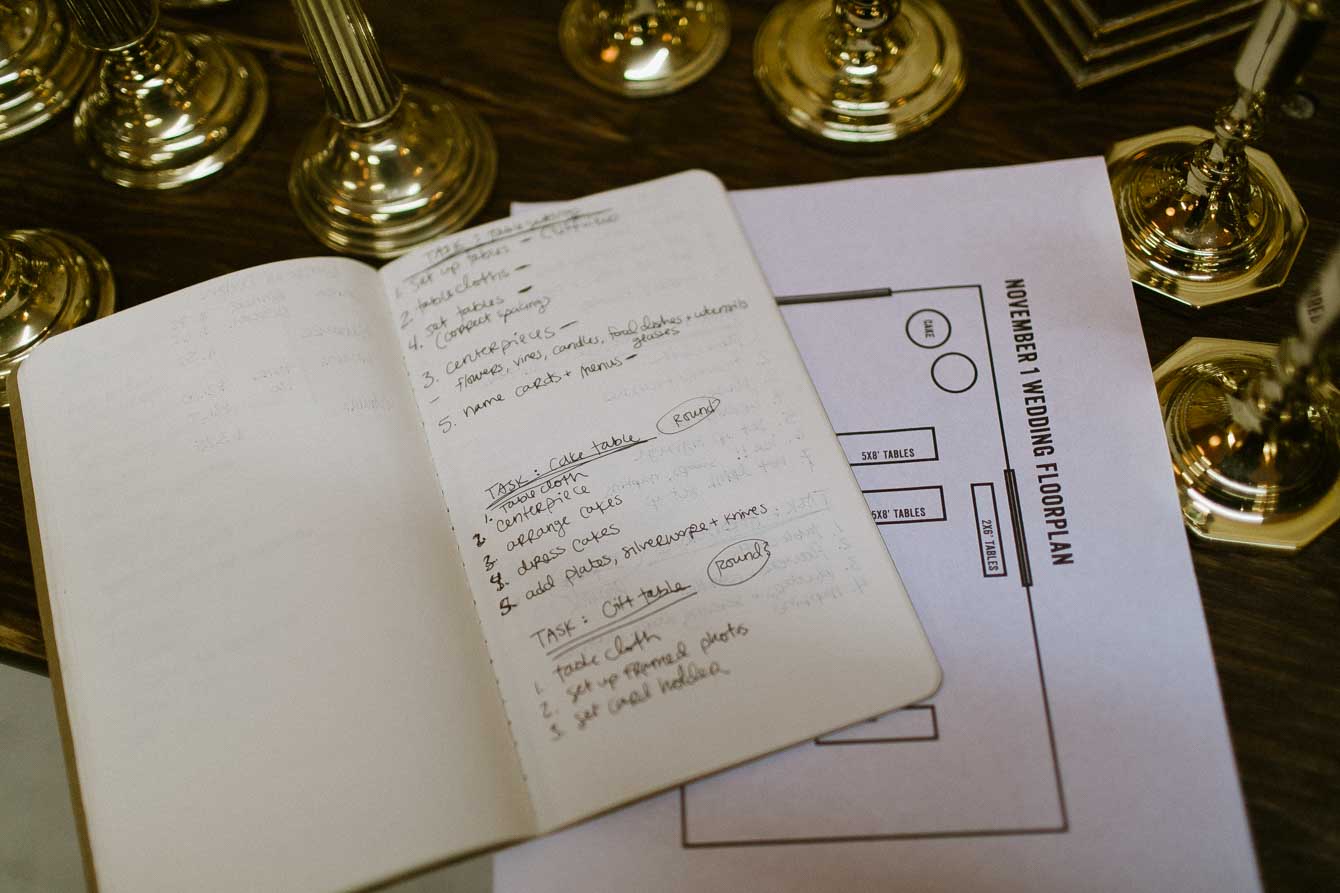 TASK: Table setting
1. set up tables -
2. tablecloths -
4. set tables -
(correct spacing)
3. centerpieces -
- flowers, vines, candles, food dishes + utensils
glasses
5. name cards + menus -
TASK: Cake table Round
1. Tablecloth
2. centerpiece
3. arrange cakes
4. dress cakes
5. add plates, silverware + knives
TASK: Gift table Round
1. table cloth
2. set up framed photos
3. set card holder
NOVEMBER 1 WEDDING FLOORPLAN
CAKE
5X8' TABLES
5X8' TABLES
2X6' TABLES